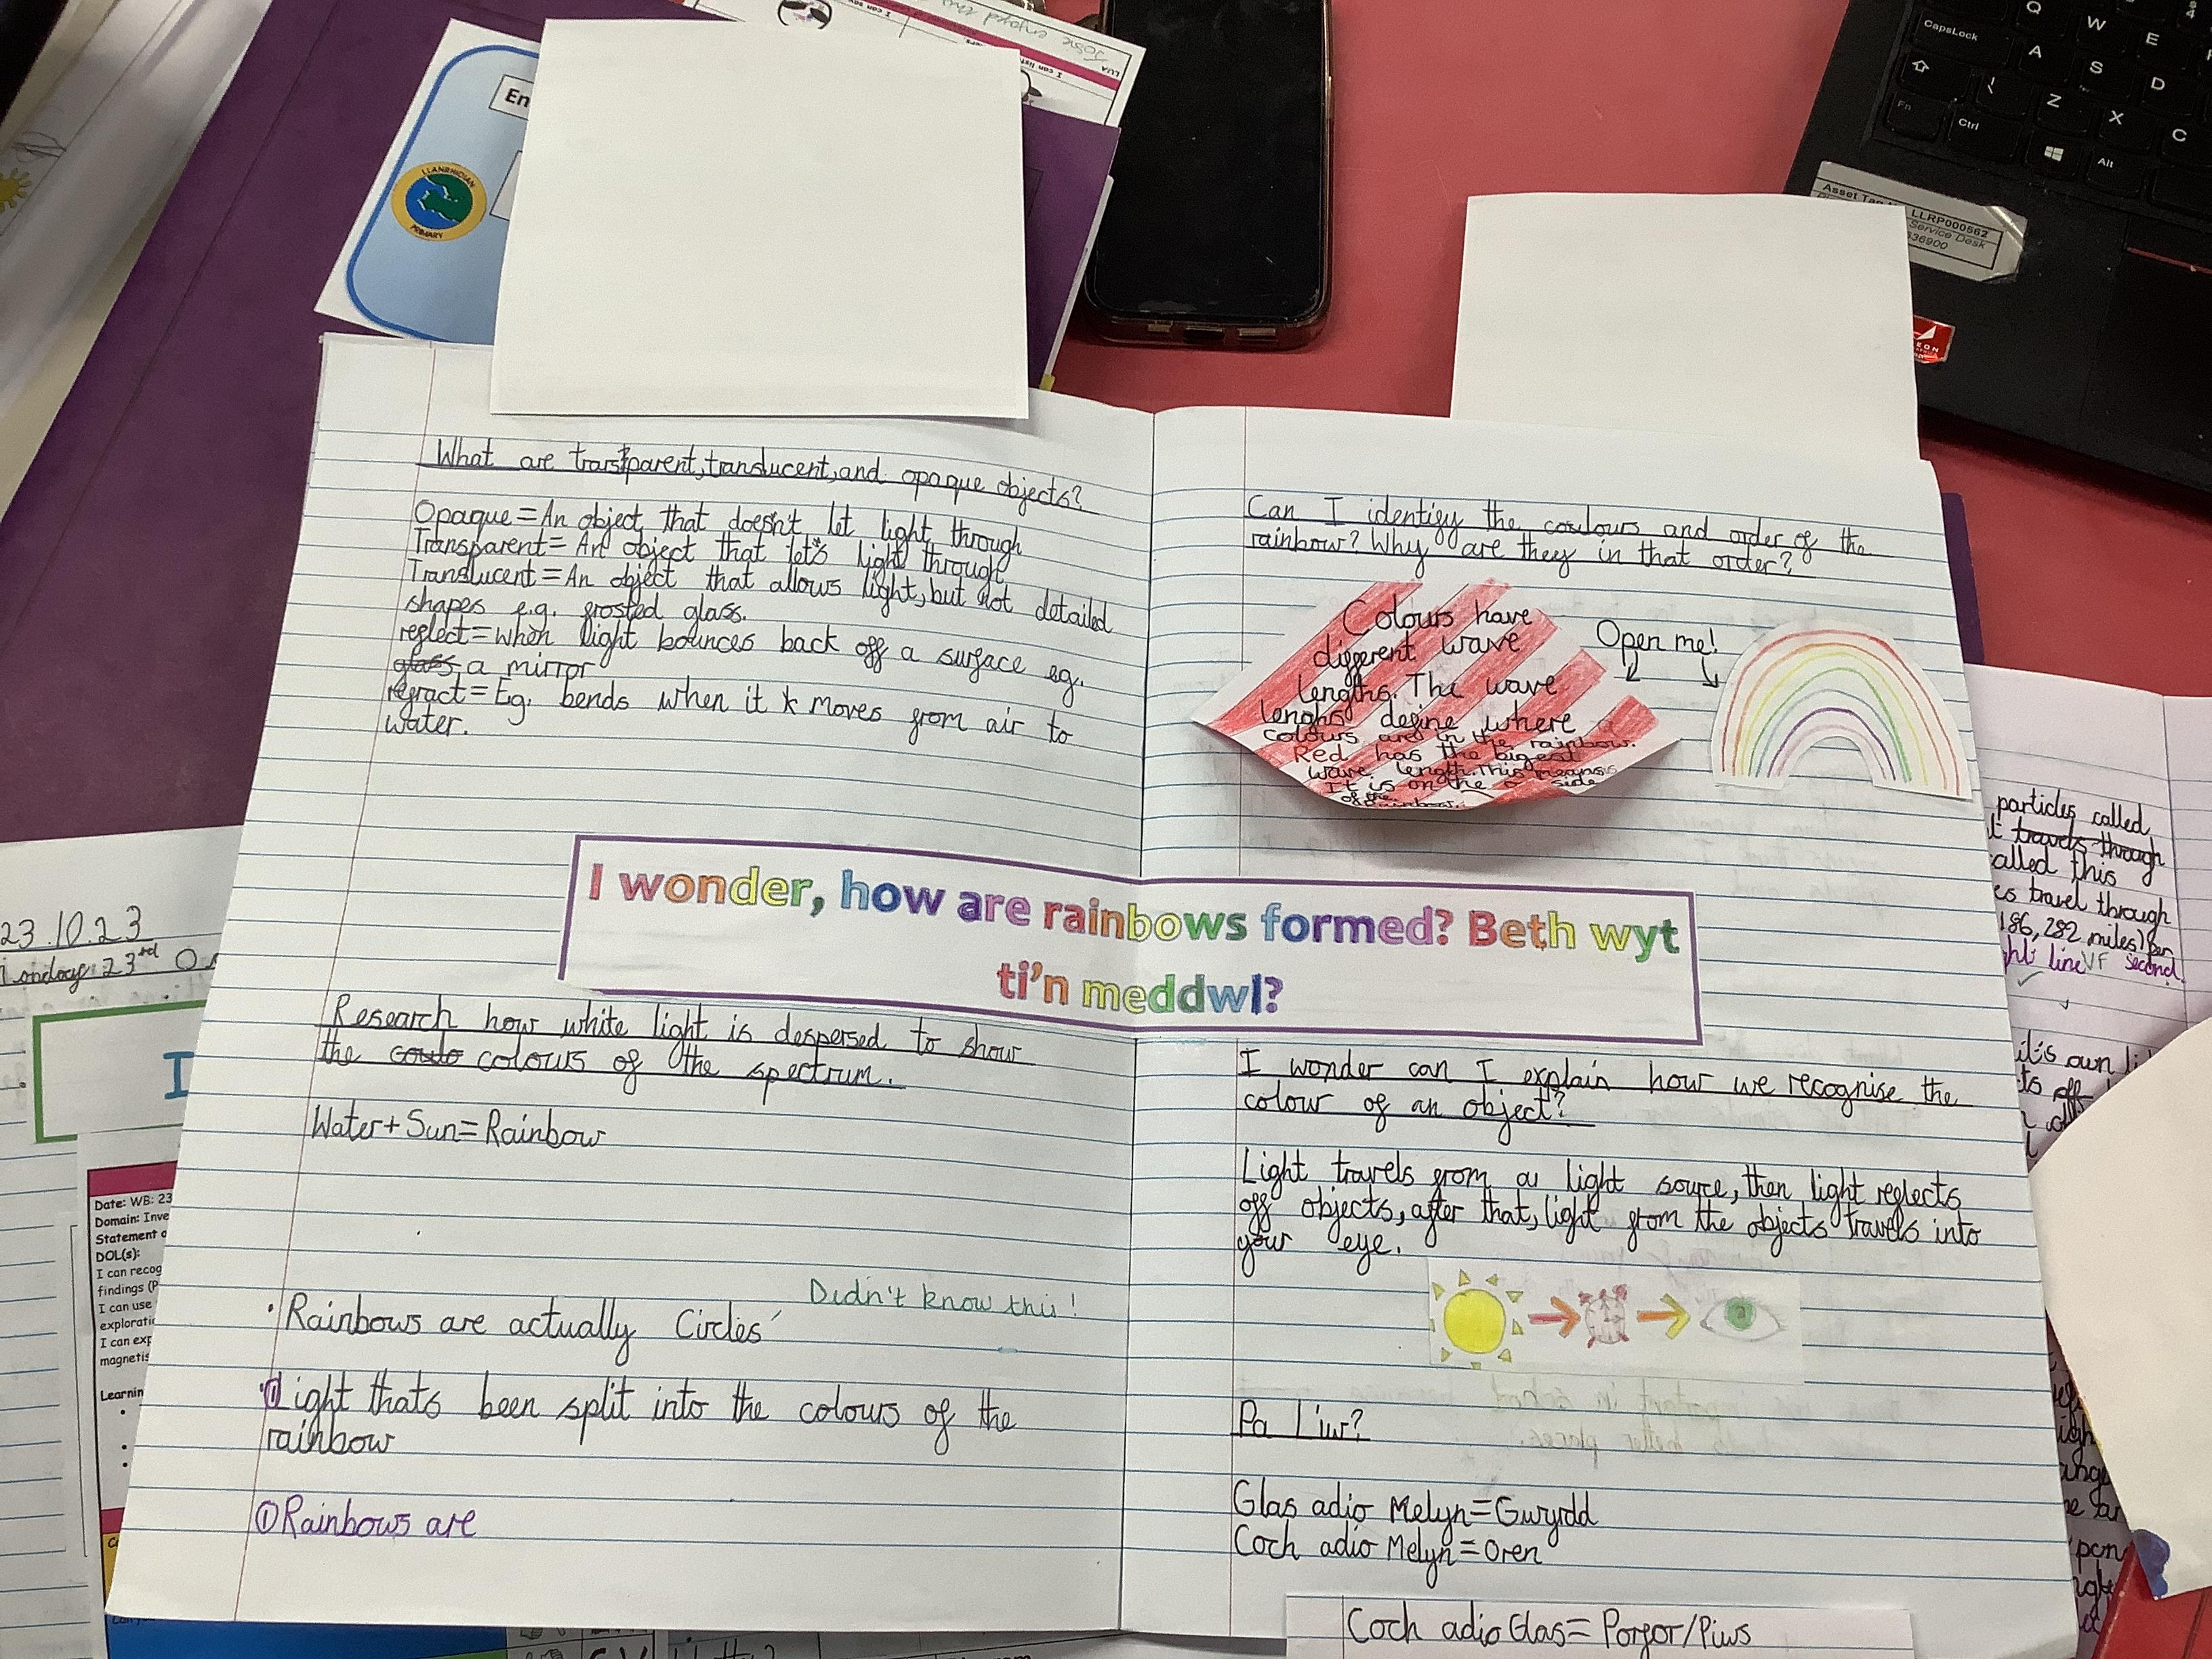 What are transparent, translucent, and opaque objects?
Opaque = An object that doesn't let light through
Transparent = An object that let's light through
Translucent = An object that allows light, but not detailed
shapes e.g. frosted glass.
reflect = when light bounces back off a surface eg.
glass a mirror
refract = Eg. bends when it moves from air to
water.
Can I identify the coulours and order of the
rainbow? Why are they in that order?
Colours have
different wave
lengths. The wave
lenghs define where
colours are in the rainbow.
Red has the bigest
wave length. This means
It is on the side
of the rainbow.
Open me!
I wonder, how are rainbows formed? Beth wyt
ti'n meddwl?
Research how white light is despersed to show
the coulo colours of the spectrum.
Water + Sun = Rainbow
Didn't know this!
• Rainbows are actually Circles
• Light thats been split into the colours of the
rainbow
① Rainbows are
I wonder can I explain how we recognise the
colour of an object?
Light travels from a light source, then light reflects
off objects, after that, light from the objects travels into
your eye.
Pa Liw?
Glas adio Melyn = Gwyrdd
Coch adio Melyn = Oren
Coch adio Glas = Porfor/Piws
23.10.23
23rd
I
Date: WB: 23
Domain: Inve
Statement o
DOL(s):
I can recog
findings (P
I can use
exploratio
I can exp
magnetis
Learnin
particles called
travels through
called this
travel through
186,282 miles) per
line VF second
it's own
off
En
LLANRHIDIAN
PRIMARY
LUA
I can list
Asset Tag
LLRP000562
Service Desk
636900
CapsLock
Q
W
E
A
S
D
Z
X
C
Fn
Ctrl
Alt